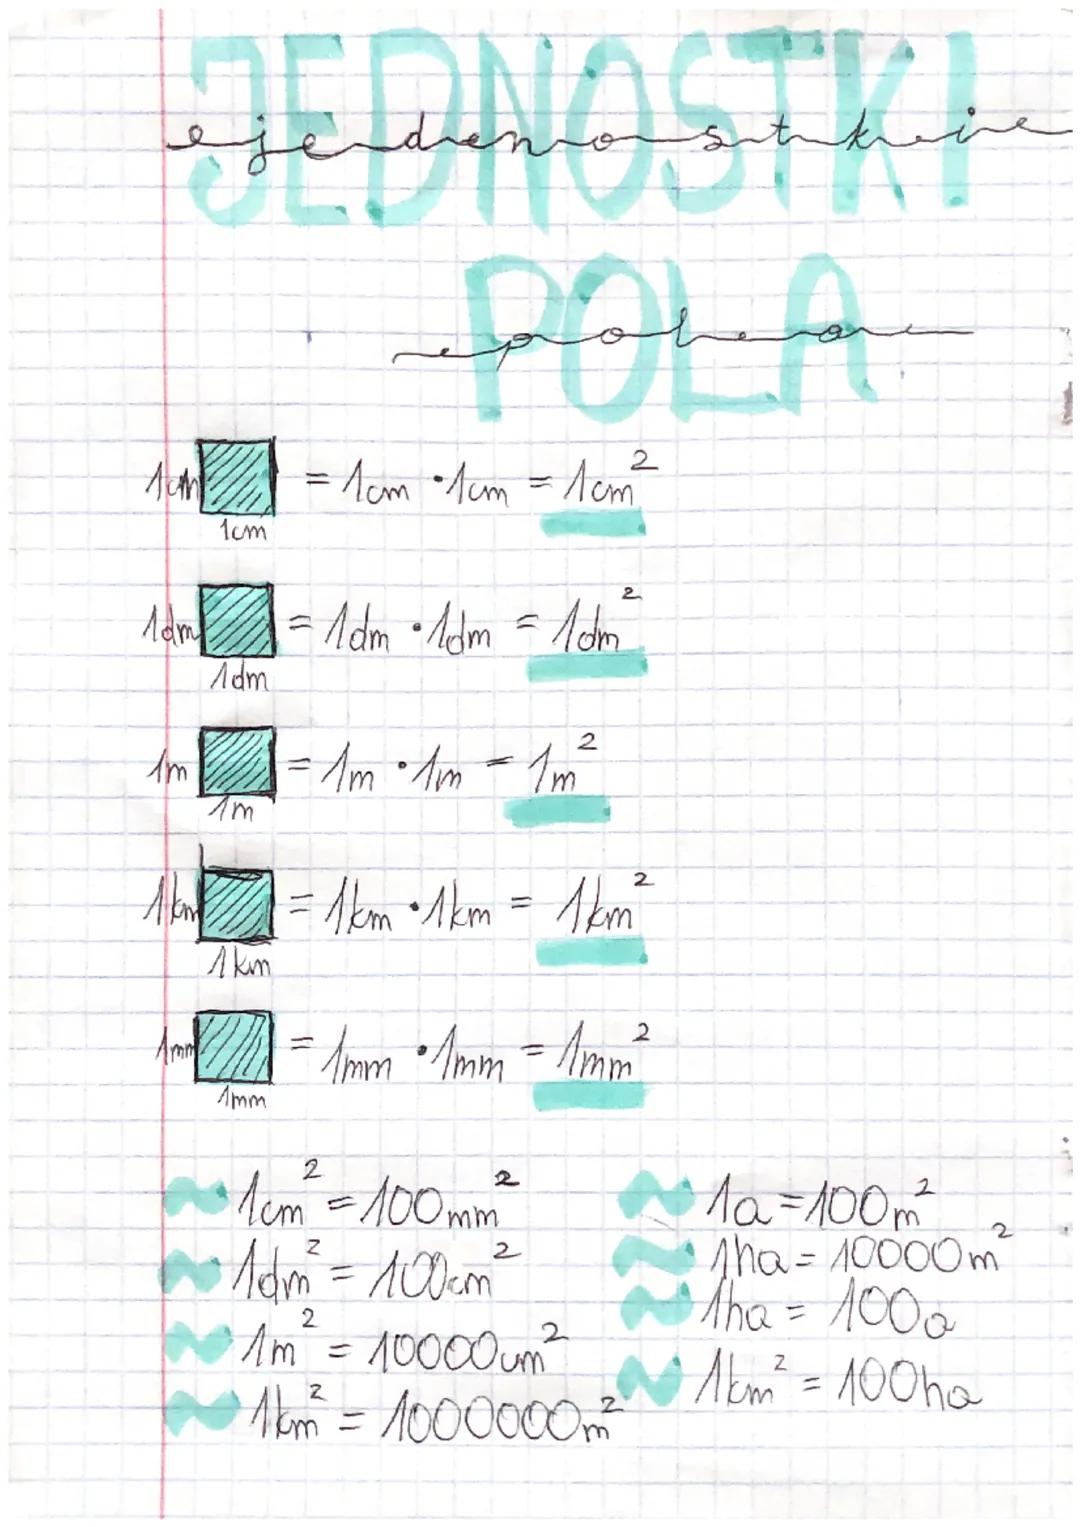 JEDNOSTKI
jednostki
POLA
pola
1cm = 1cm · 1cm = 1cm²
1cm
1dm = 1dm · 1dm = 1dm²
1dm
1m = 1m · 1m = 1m²
1m
1km = 1km · 1km = 1km²
1km
1mm = 1mm · 1mm = 1mm²
1mm
~ 1cm² = 100mm²
~ 1dm² = 100cm²
~ 1m² = 10000cm²
~ 1km² = 1000000m²
~ 1a = 100m²
~ 1ha = 10000m²
~ 1ha = 100a
~ 1km² = 100ha